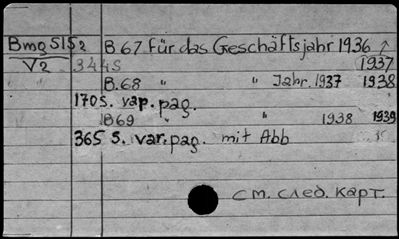 Bmg 515₂ B 67 für das Geschäftsjahr 1936 ↑
V2 344S 1937
B.68 " " Jahr 1937 1938
170 S. var. pag.
B69 " " 1938 1939
365 S. var. pag. mit Abb
см. след. карт.